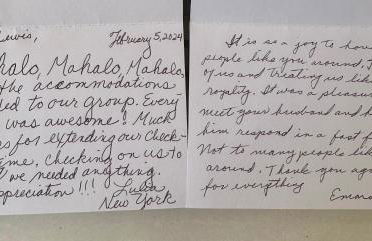 Lewis,
February 5, 2024
Mahalo, Mahalo, Mahalo,
the accommodations
to our group. Every
was awesome! Much
for extending our check-
time, checking on us to
we needed anything.
Appreciation!!!
New York
It is so a joy to have
people like you around.
of us and treating us like
royality. It was a pleasure
meet your husband and
him respond in a fast
Not to many people like
around. Thank you
for everything